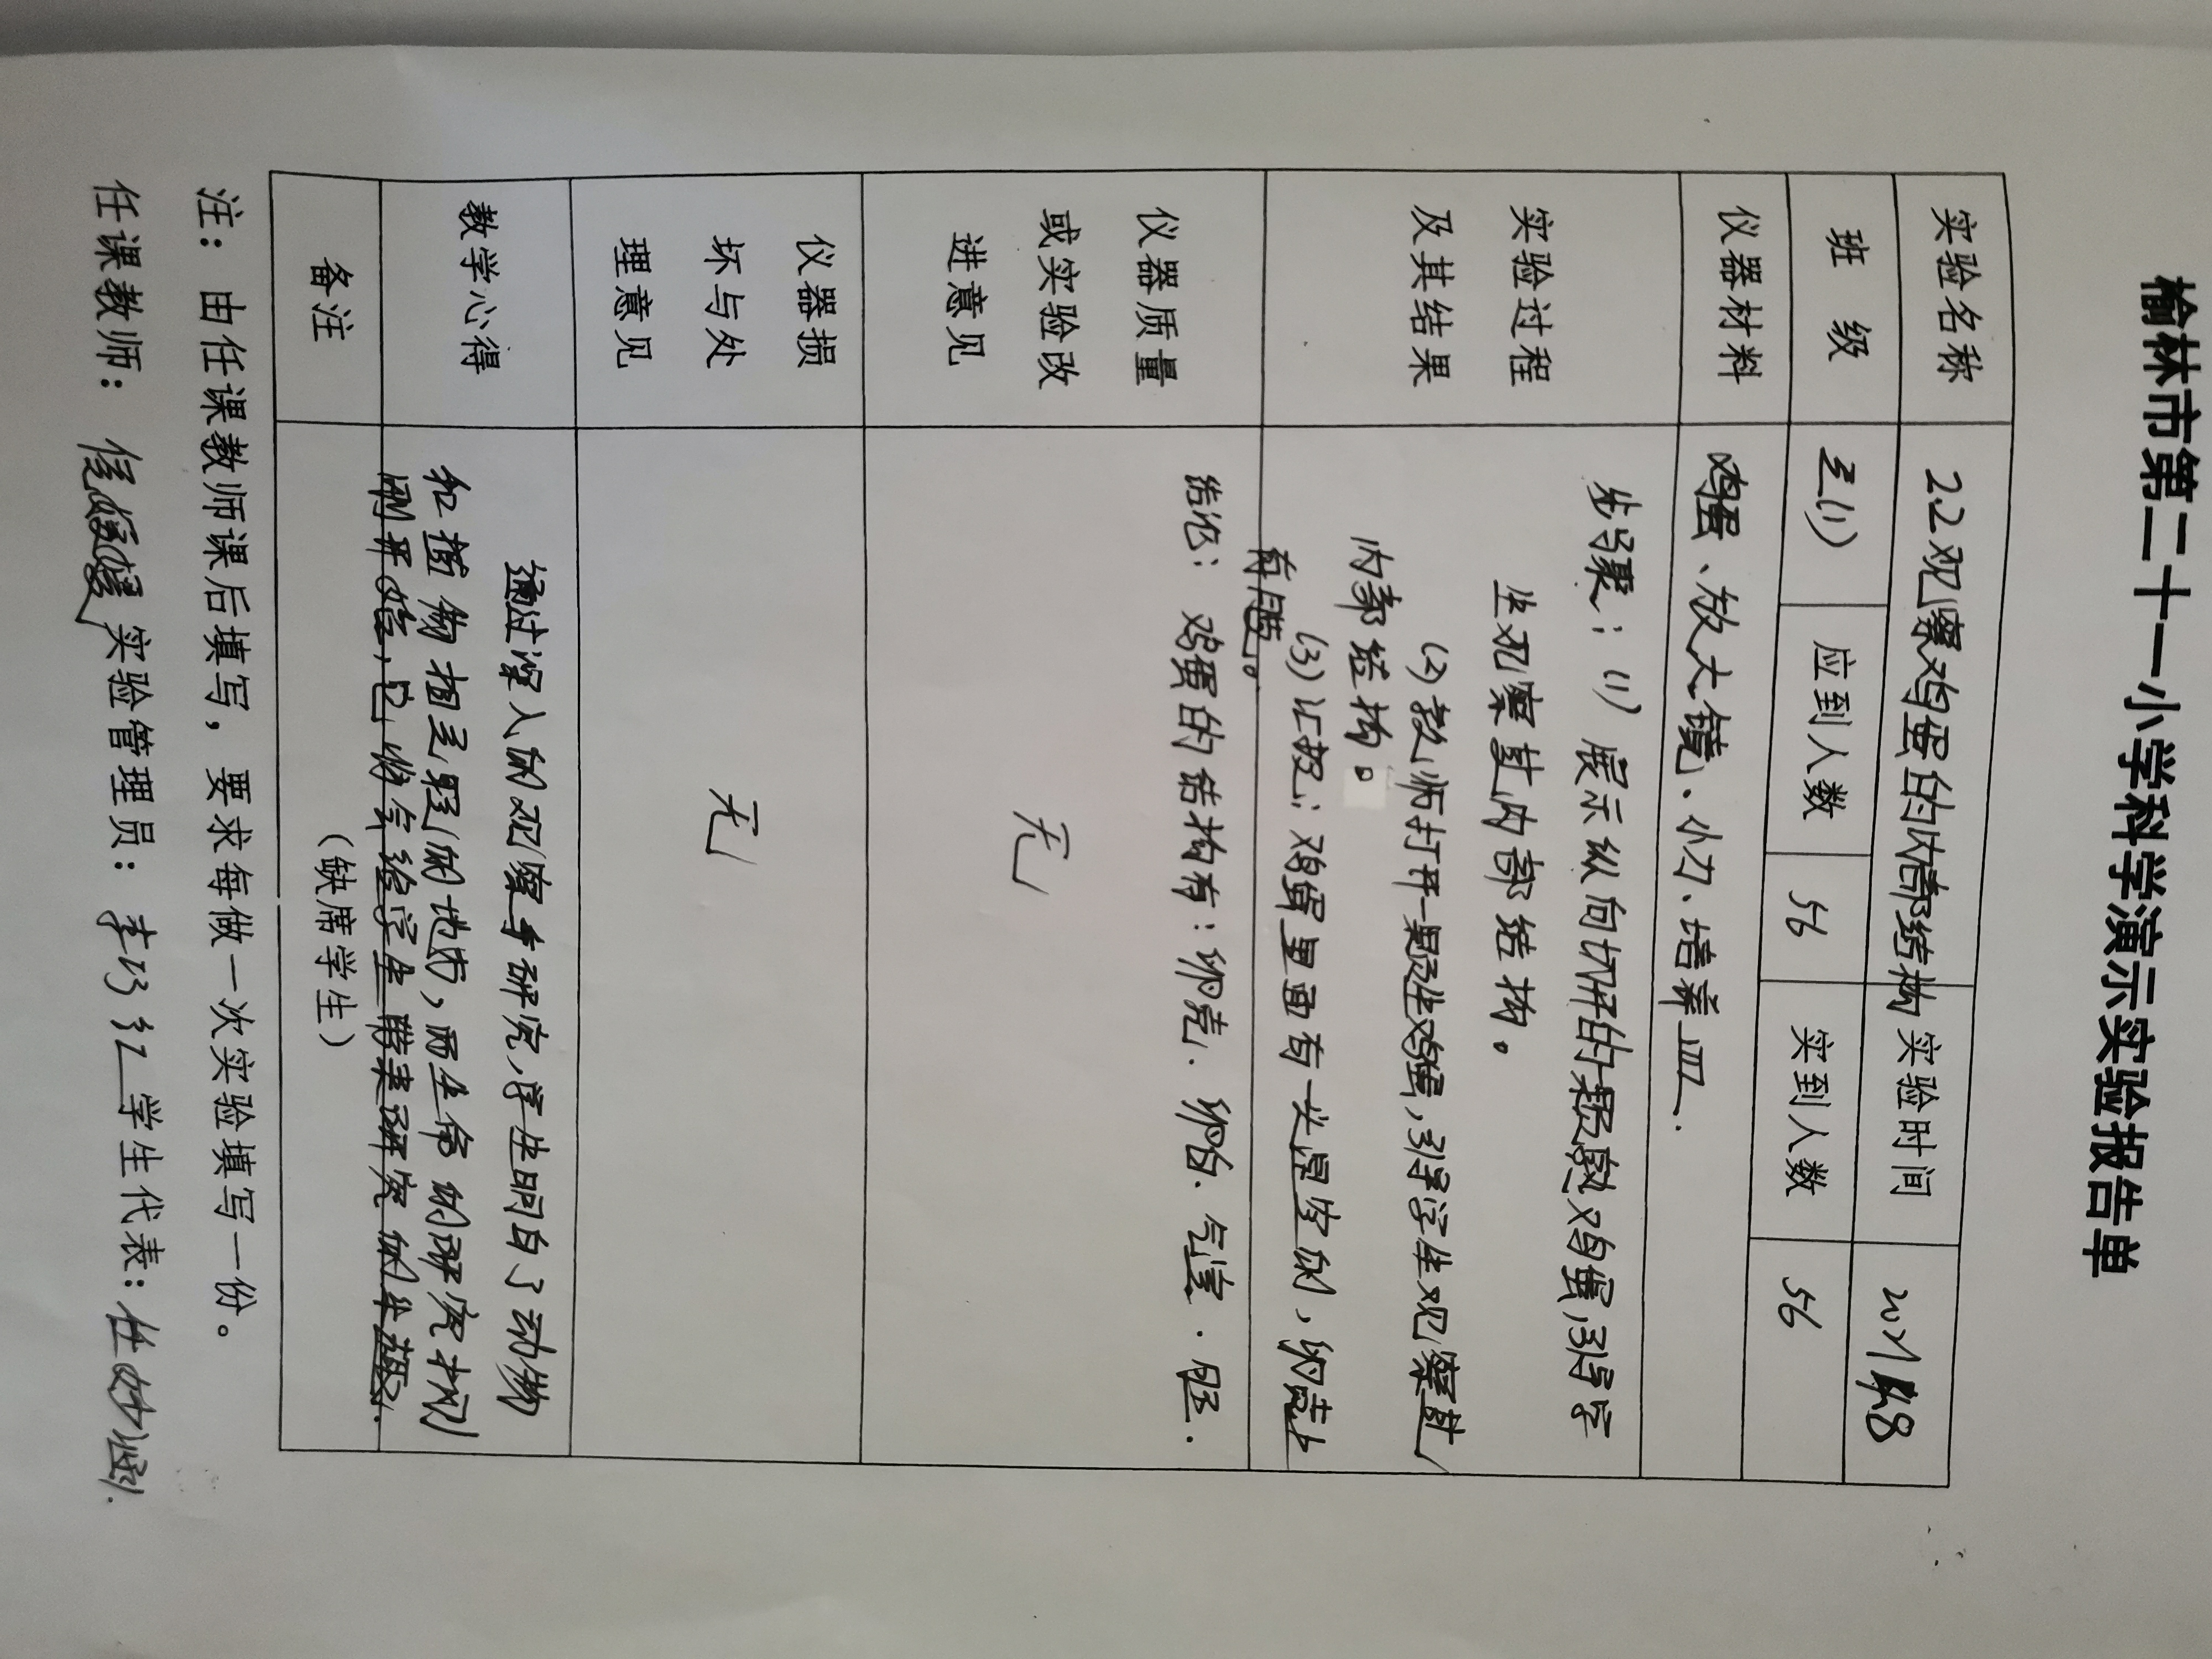 榆林市第二十一小学科学演示实验报告单
实验名称 2.2观察鸡蛋的内部结构 实验时间
班 级 三(1) 应到人数 56 实到人数 56
仪器材料 鸡蛋、放大镜、小刀、培养皿.
实验过程
及其结果
步骤：(1) 展示纵向切开的一颗熟鸡蛋,引导学
生观察其内部结构。
(2) 教师打开一颗生鸡蛋,引导学生观察其
内部结构。
(3) 汇报：鸡蛋里面有一头是空的,卵壳上
有膜。
仪器质量
或实验改
进意见
结论：鸡蛋的结构有：卵壳、卵白、气室、胚.
无
仪器损
坏与处
理意见
无
教学心得
通过深入的观察与研究,学生明白了动物
和植物相互联的地方,而生命的研究才刚
刚开始,它将会给学生带来研究的乐趣.
备注
（缺席学生）
注：由任课教师课后填写，要求每做一次实验填写一份。
任课教师： 实验管理员：李巧红 学生代表：杜妙涵